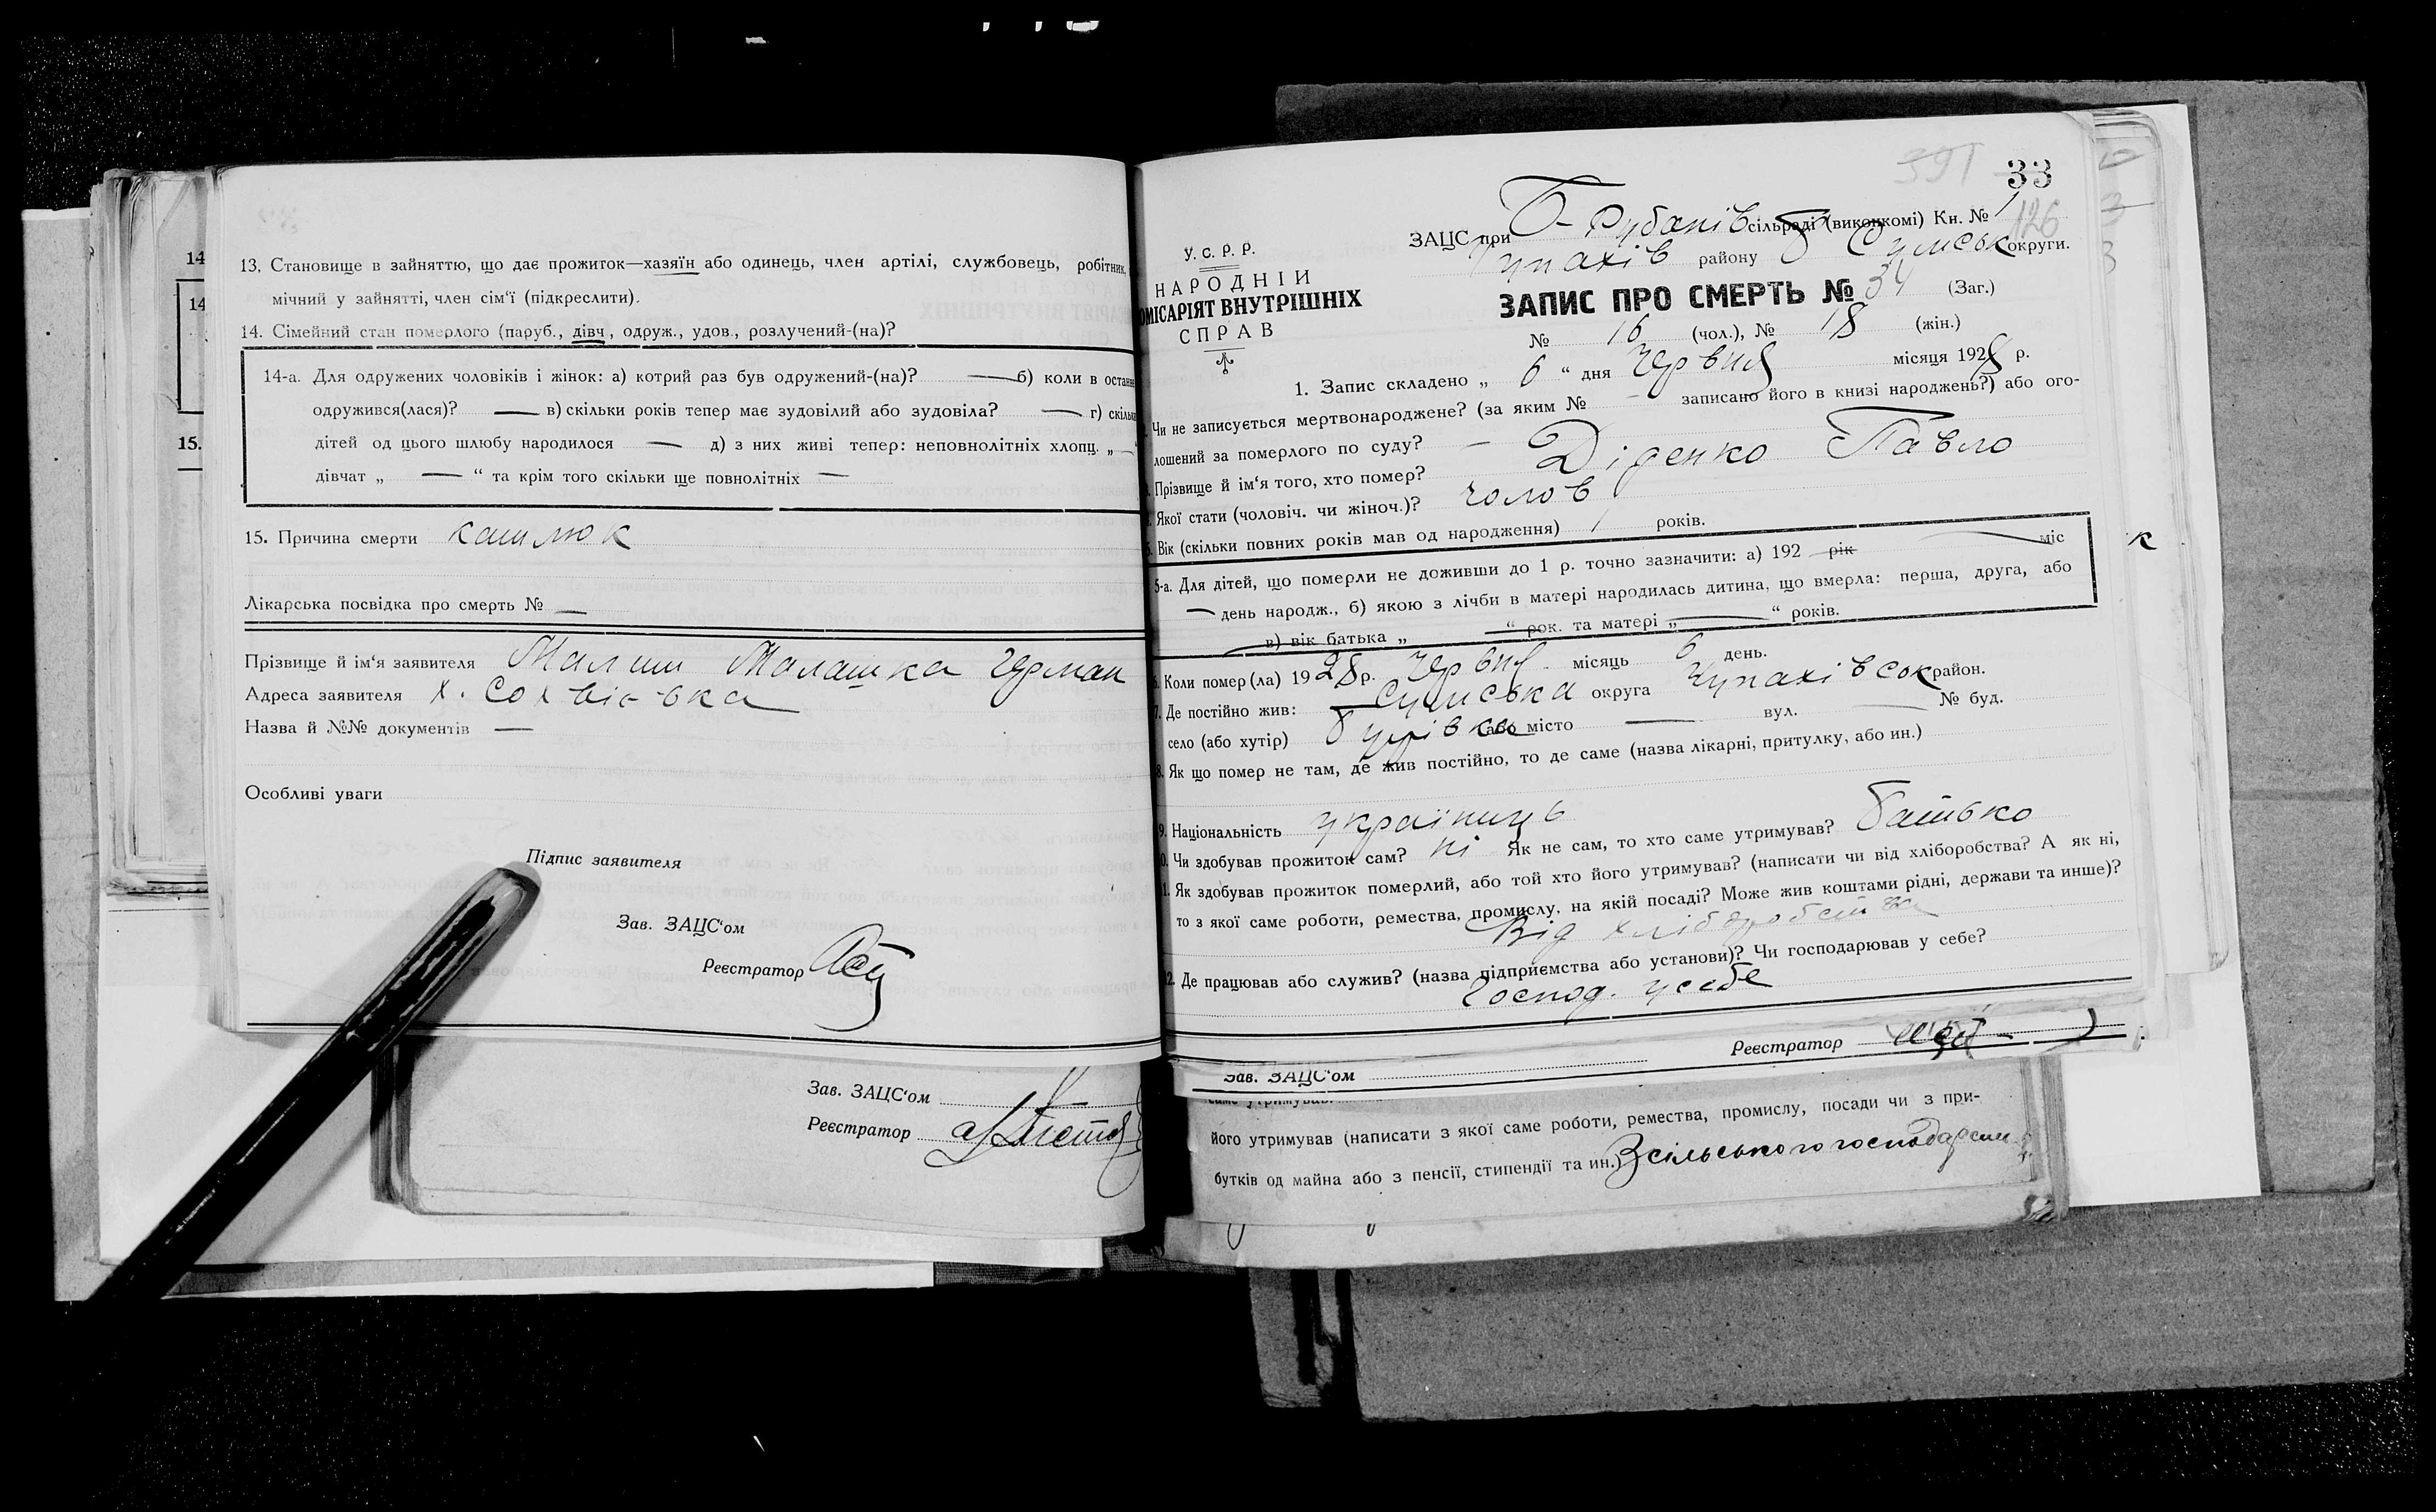 14
14
15.
13. Становище в зайняттю, що дає прожиток—хазяїн або одинець, член артілі, службовець, робітник,
мічний у зайнятті, член сім'ї (підкреслити).
14. Сімейний стан померлого (паруб., дівч, одруж., удов., розлучений-(на)?
14-а. Для одружених чоловіків і жінок: а) котрий раз був одружений-(на)? — б) коли в останн
одружився(лася)? — в) скільки років тепер має зудовілий або зудовіла? — г) скільк
дітей од цього шлюбу народилося — д) з них живі тепер: неповнолітніх хлопц. „ —
дівчат „ — “ та крім того скільки ще повнолітніх —
15. Причина смерти кашлюк
Лікарська посвідка про смерть № —
Прізвище й ім'я заявителя Малашка
Адреса заявителя х.
Назва й №№ документів —
Особливі уваги
Підпис заявителя
Зав. ЗАЦС'ом
Реєстратор
Зав. ЗАЦС'ом
Реєстратор
391 33
126
У.С.Р.Р.
НАРОДНІИ
ОМІСАРІЯТ ВНУТРІШНІХ
СПРАВ
ЗАЦС при Б-Рубанів сільраді (виконкомі) Кн. № 1
Чупахів району Сумськ округи.
ЗАПИС ПРО СМЕРТЬ № 34 (Заг.)
№ 16 (чол.), № 18 (жін.)
1. Запис складено „ 6 “ дня Червня місяця 1928 р.
Чи не записується мертвонароджене? (за яким № - записано його в книзі народжень?) або ого-
лошений за померлого по суду? —
Прізвище й ім'я того, хто помер? Діденко Павло
Якої стати (чоловіч. чи жіноч.)? чолов
5. Вік (скільки повних років мав од народження) 1 років.
5-а. Для дітей, що померли не доживши до 1 р. точно зазначити: а) 192 — рік — міс
— день народж., б) якою з лічби в матері народилась дитина, що вмерла: перша, друга, або
в) вік батька „ — “ рок. та матері „ — “ років.
6. Коли помер(ла) 1928 р. Червня місяць 6 день.
7. Де постійно жив: Сумська округа Чупахівськ район.
село (або хутір) або місто — вул. — № буд.
8. Як що помер не там, де жив постійно, то де саме (назва лікарні, притулку, або ин.)
9. Національність українць
0. Чи здобував прожиток сам? ні Як не сам, то хто саме утримував? батько
1. Як здобував прожиток померлий, або той хто його утримував? (написати чи від хліборобства? А як ні,
то з якої саме роботи, ремества, промислу, на якій посаді? Може жив коштами рідні, держави та инше)?
Від хліборобства
12. Де працював або служив? (назва підприємства або установи)? Чи господарював у себе?
Господ. у себе
Реєстратор
Зав. ЗАЦС'ом
саме утримував.
його утримував (написати з якої саме роботи, ремества, промислу, посади чи з при-
бутків од майна або з пенсії, стипендії та ин.) З сільського господарств
к